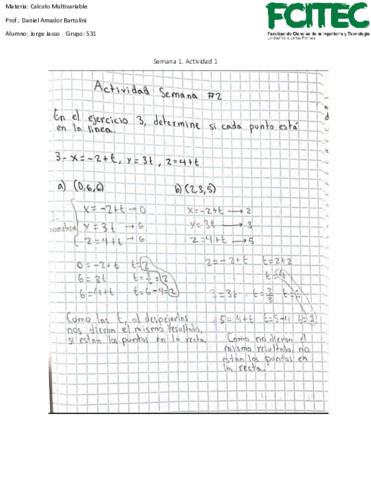 Materia: Calculo Multivariable
Prof.: Daniel Amador Bartolini
Alumno: Jorge Jasso Grupo: 531
FCITEC
Facultad de Ciencias de la Ingeniería y Tecnología
Semana 1. Actividad 1
Actividad Semana #2
En el ejercicio 3, determine si cada punto está
en la línea.
3- x=-2+t, y=3t, z=4+t
a) (0,6,6)
b) (2,3,5)
x=-2+t→0
y=3t→6
z=4+t→6
x=-2+t→2
y=3t→3
z=4+t→5
0=-2+t t=2
6=3t t=6/3=2
6=4+t t=6-4=2
2=-2+t
t=4
3=3t t=3/3 t=1
5=4+t t=5-4 t=1
Como las t, al despejarlos
nos dieron el mismo resultado,
si estan los puntos en la recta.
Como no dieron el
mismo resultado, no
estan los puntos en
la recta.